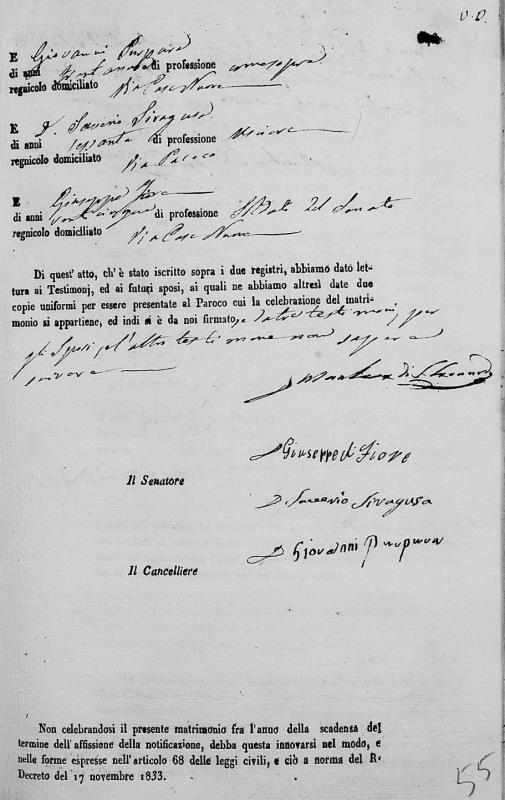 V. D.
E Giovanni Purpura
di anni di professione come sopra
regnicolo domiciliato Via Case Nuove
E D. Saverio Siragusa
di anni sessanta di professione usciere
regnicolo domiciliato Via
E Giuseppe Fiore
di anni venticinque di professione del Senato
regnicolo domiciliato Via Case Nuove
Di quest' atto, ch'è stato iscritto sopra i due registri, abbiamo dato let-
tura ai Testimonj, ed ai futuri sposi, ai quali ne abbiamo altresì date due
copie uniformi per essere presentate al Paroco cui la celebrazione del matri-
monio si appartiene, ed indi si è da noi firmato, e da tre testimonj, per
gli Sposi, e l'altro testimone non sapere
scrivere
di S. Leonardo
D Giuseppe di Fiore
Il Senatore
D. Saverio Siragusa
D Giovanni Purpura
Il Cancelliere
Non celebrandosi il presente matrimonio fra l'anno della scadenza del
termine dell'affissione della notificazione, debba questa innovarsi nel modo, e
nelle forme espresse nell'articolo 68 delle leggi civili, e ciò a norma del R.
Decreto del 17 novembre 1833.
55